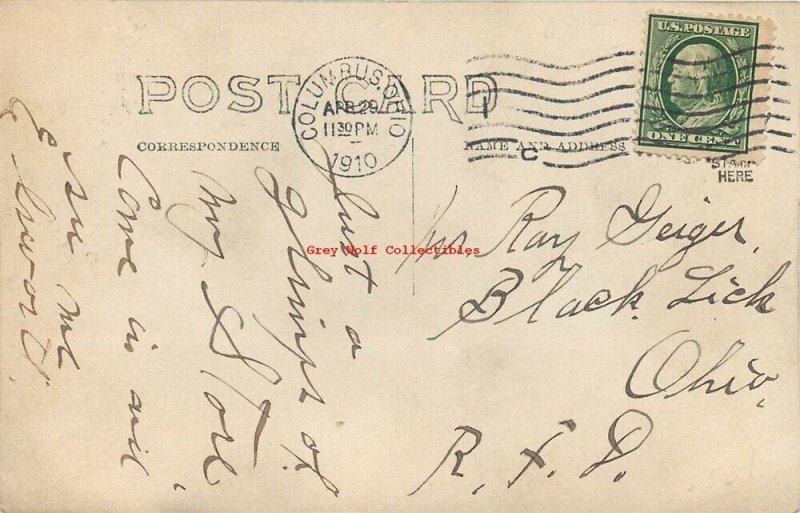 POST CARD
CORRESPONDENCE
NAME AND ADDRESS
U.S. POSTAGE
ONE CENT
STAMP
HERE
COLUMBUS, OHIO
APR 29
11 30 PM
1910
C
Just a
glimps of
my Store
Come in and
see me
Elswort
Grey Wolf Collectibles
Ray Geiger,
Black Lick
Ohio,
R. F. D.